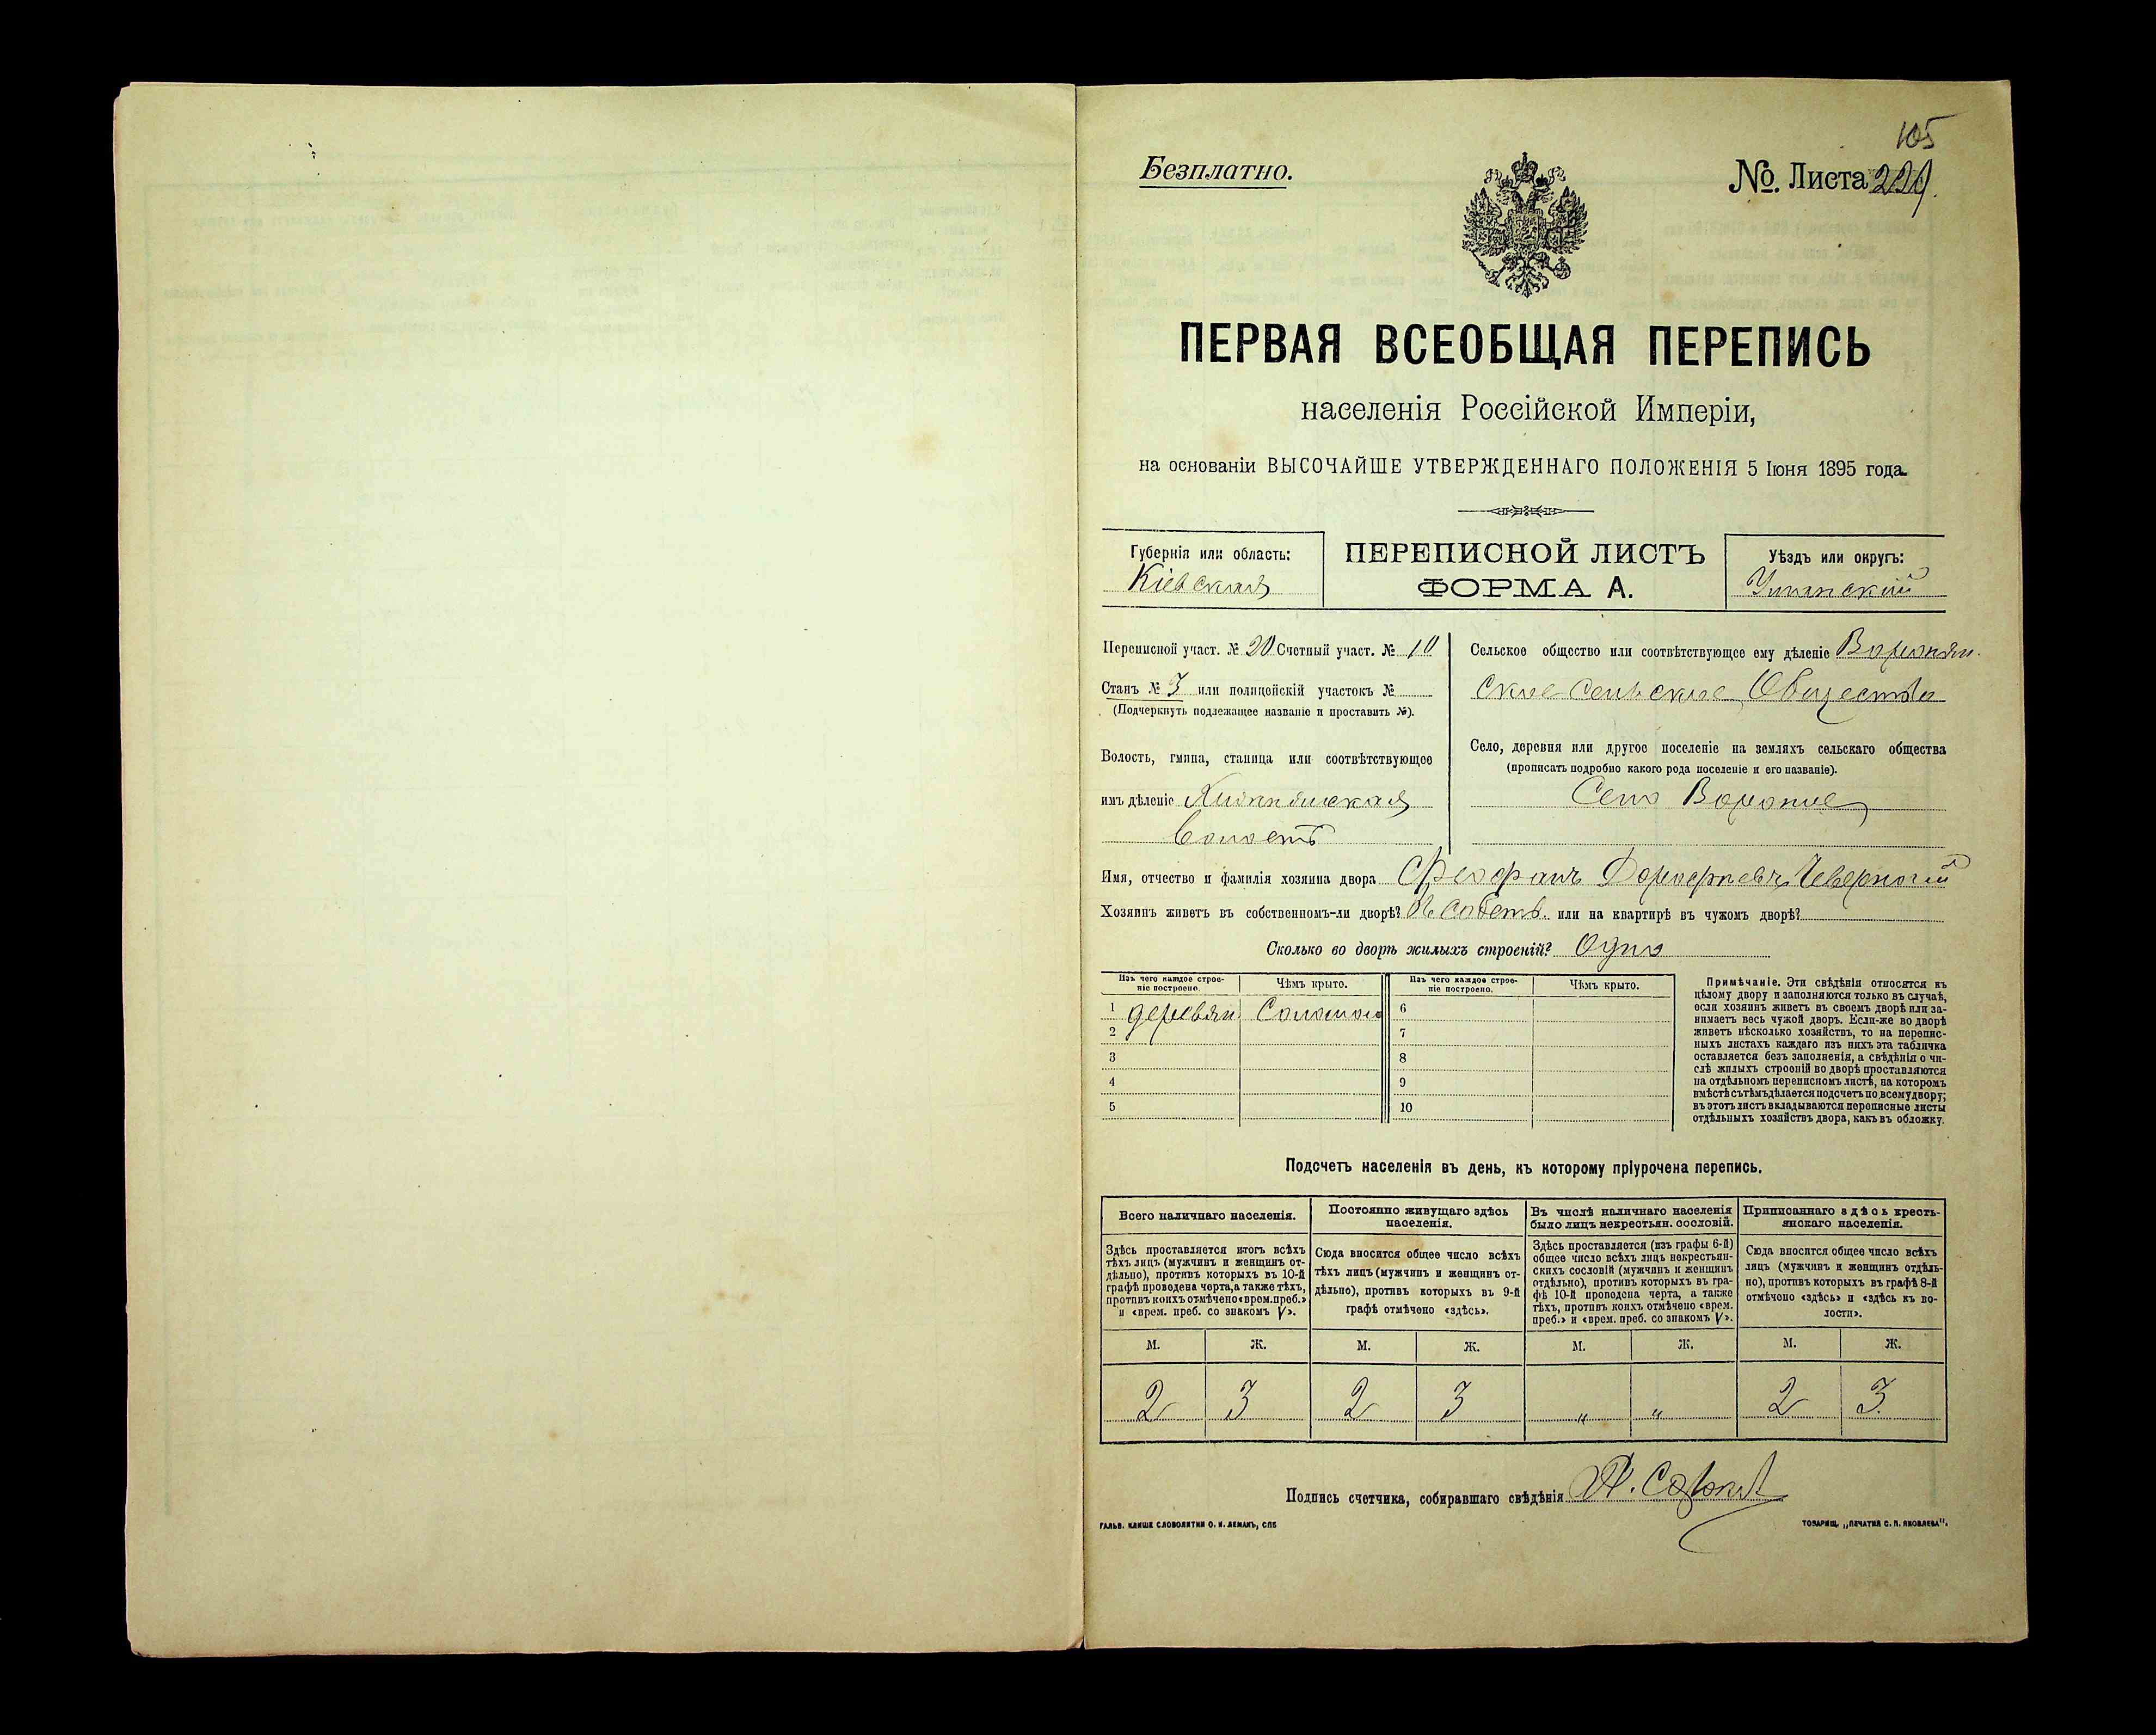 105
Безплатно.
№. Листа 229.
ПЕРВАЯ ВСЕОБЩАЯ ПЕРЕПИСЬ
населенія Россійской Имперіи,
на основаніи ВЫСОЧАЙШЕ УТВЕРЖДЕННАГО ПОЛОЖЕНІЯ 5 Іюня 1895 года.
Губернія или область:
Кіевская
ПЕРЕПИСНОЙ ЛИСТЪ
ФОРМА А.
Уѣздъ или округъ:
Уманскій
Переписной участ. № 20 Счетный участ. № 10
Станъ № 3 или полицейскій участокъ №
(Подчеркнуть подлежащее названіе и проставить №).
Волость, гмина, станица или соотвѣтствующее
имъ дѣленіе
волость
Сельское общество или соотвѣтствующее ему дѣленіе Воронян-
ское сельское Общество
Село, деревня или другое поселеніе на земляхъ сельскаго общества
(прописать подробно какого рода поселеніе и его названіе).
Село Вороное
Имя, отчество и фамилія хозяина двора Феофанъ Дорофѣевъ
Хозяинъ живетъ въ собственномъ-ли дворѣ? Въ собств. или на квартирѣ въ чужомъ дворѣ?
Сколько во дворѣ жилыхъ строеній? Одно
Изъ чего каждое строе-
ніе построено.
Чѣмъ крыто.
Изъ чего каждое строе-
ніе построено.
Чѣмъ крыто.
1 деревян. Соломою 6
2 7
3 8
4 9
5 10
Примѣчаніе. Эти свѣдѣнія относятся къ
цѣлому двору и заполняются только въ случаѣ,
если хозяинъ живетъ въ своемъ дворѣ или за-
нимаетъ весь чужой дворъ. Если-же во дворѣ
живетъ нѣсколько хозяйствъ, то на перепис-
ныхъ листахъ каждаго изъ нихъ эта табличка
оставляется безъ заполненія, а свѣдѣнія о чи-
слѣ жилыхъ строеній во дворѣ проставляются
на отдѣльномъ переписномъ листѣ, на которомъ
вмѣстѣ съ тѣмъ дѣлается подсчетъ по всему двору;
въ этотъ листъ вкладываются переписные листы
отдѣльныхъ хозяйствъ двора, какъ въ обложку.
Подсчетъ населенія въ день, къ которому пріурочена перепись.
Всего наличнаго населенія.
Здѣсь проставляется итогъ всѣхъ
тѣхъ лицъ (мужчинъ и женщинъ от-
дѣльно), противъ которыхъ въ 10-й
графѣ проведена черта, а также тѣхъ,
противъ коихъ отмѣчено «врем. преб.»
и «врем. преб. со знакомъ V».
Постоянно живущаго здѣсь
населенія.
Сюда вносится общее число всѣхъ
тѣхъ лицъ (мужчинъ и женщинъ от-
дѣльно), противъ которыхъ въ 9-й
графѣ отмѣчено «здѣсь».
Въ числѣ наличнаго населенія
было лицъ некрестьян. сословій.
Здѣсь проставляется (изъ графы 6-й)
общее число всѣхъ лицъ некрестьян-
скихъ сословій (мужчинъ и женщинъ
отдѣльно), противъ которыхъ въ гра-
фѣ 10-й проведена черта, а также
тѣхъ, противъ коихъ отмѣчено «врем.
преб.» и «врем. преб. со знакомъ V».
Приписаннаго здѣсь кресть-
янскаго населенія.
Сюда вносится общее число всѣхъ
лицъ (мужчинъ и женщинъ отдѣль-
но), противъ которыхъ въ графѣ 8-й
отмѣчено «здѣсь» и «здѣсь къ во-
лости».
М. Ж. М. Ж. М. Ж. М. Ж.
2 3 2 3 " " 2 3
Подпись счетчика, собиравшаго свѣдѣнія
ГАЛЬВ. КЛИШЕ СЛОВОЛИТНИ О. И. ЛЕМАНЪ, СПБ
ТОВАРИЩ. „ПЕЧАТНЯ С. П. ЯКОВЛЕВА".